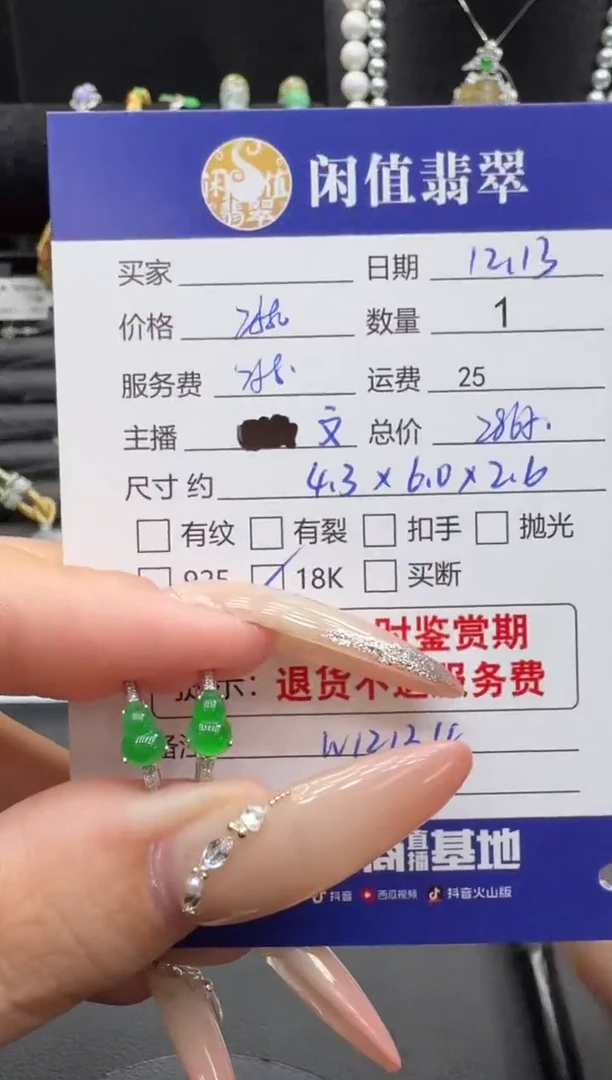 闲值翡翠
闲值翡翠
买家 日期 12.13
价格 数量 1
服务费 运费 25
主播 文 总价
尺寸 约 4.3 x 6.0 x 2.6
有纹 有裂 扣手 抛光
925 18K 买断
时鉴赏期
提示: 退货不退服务费
备注
直播基地
抖音 西瓜视频 抖音火山版